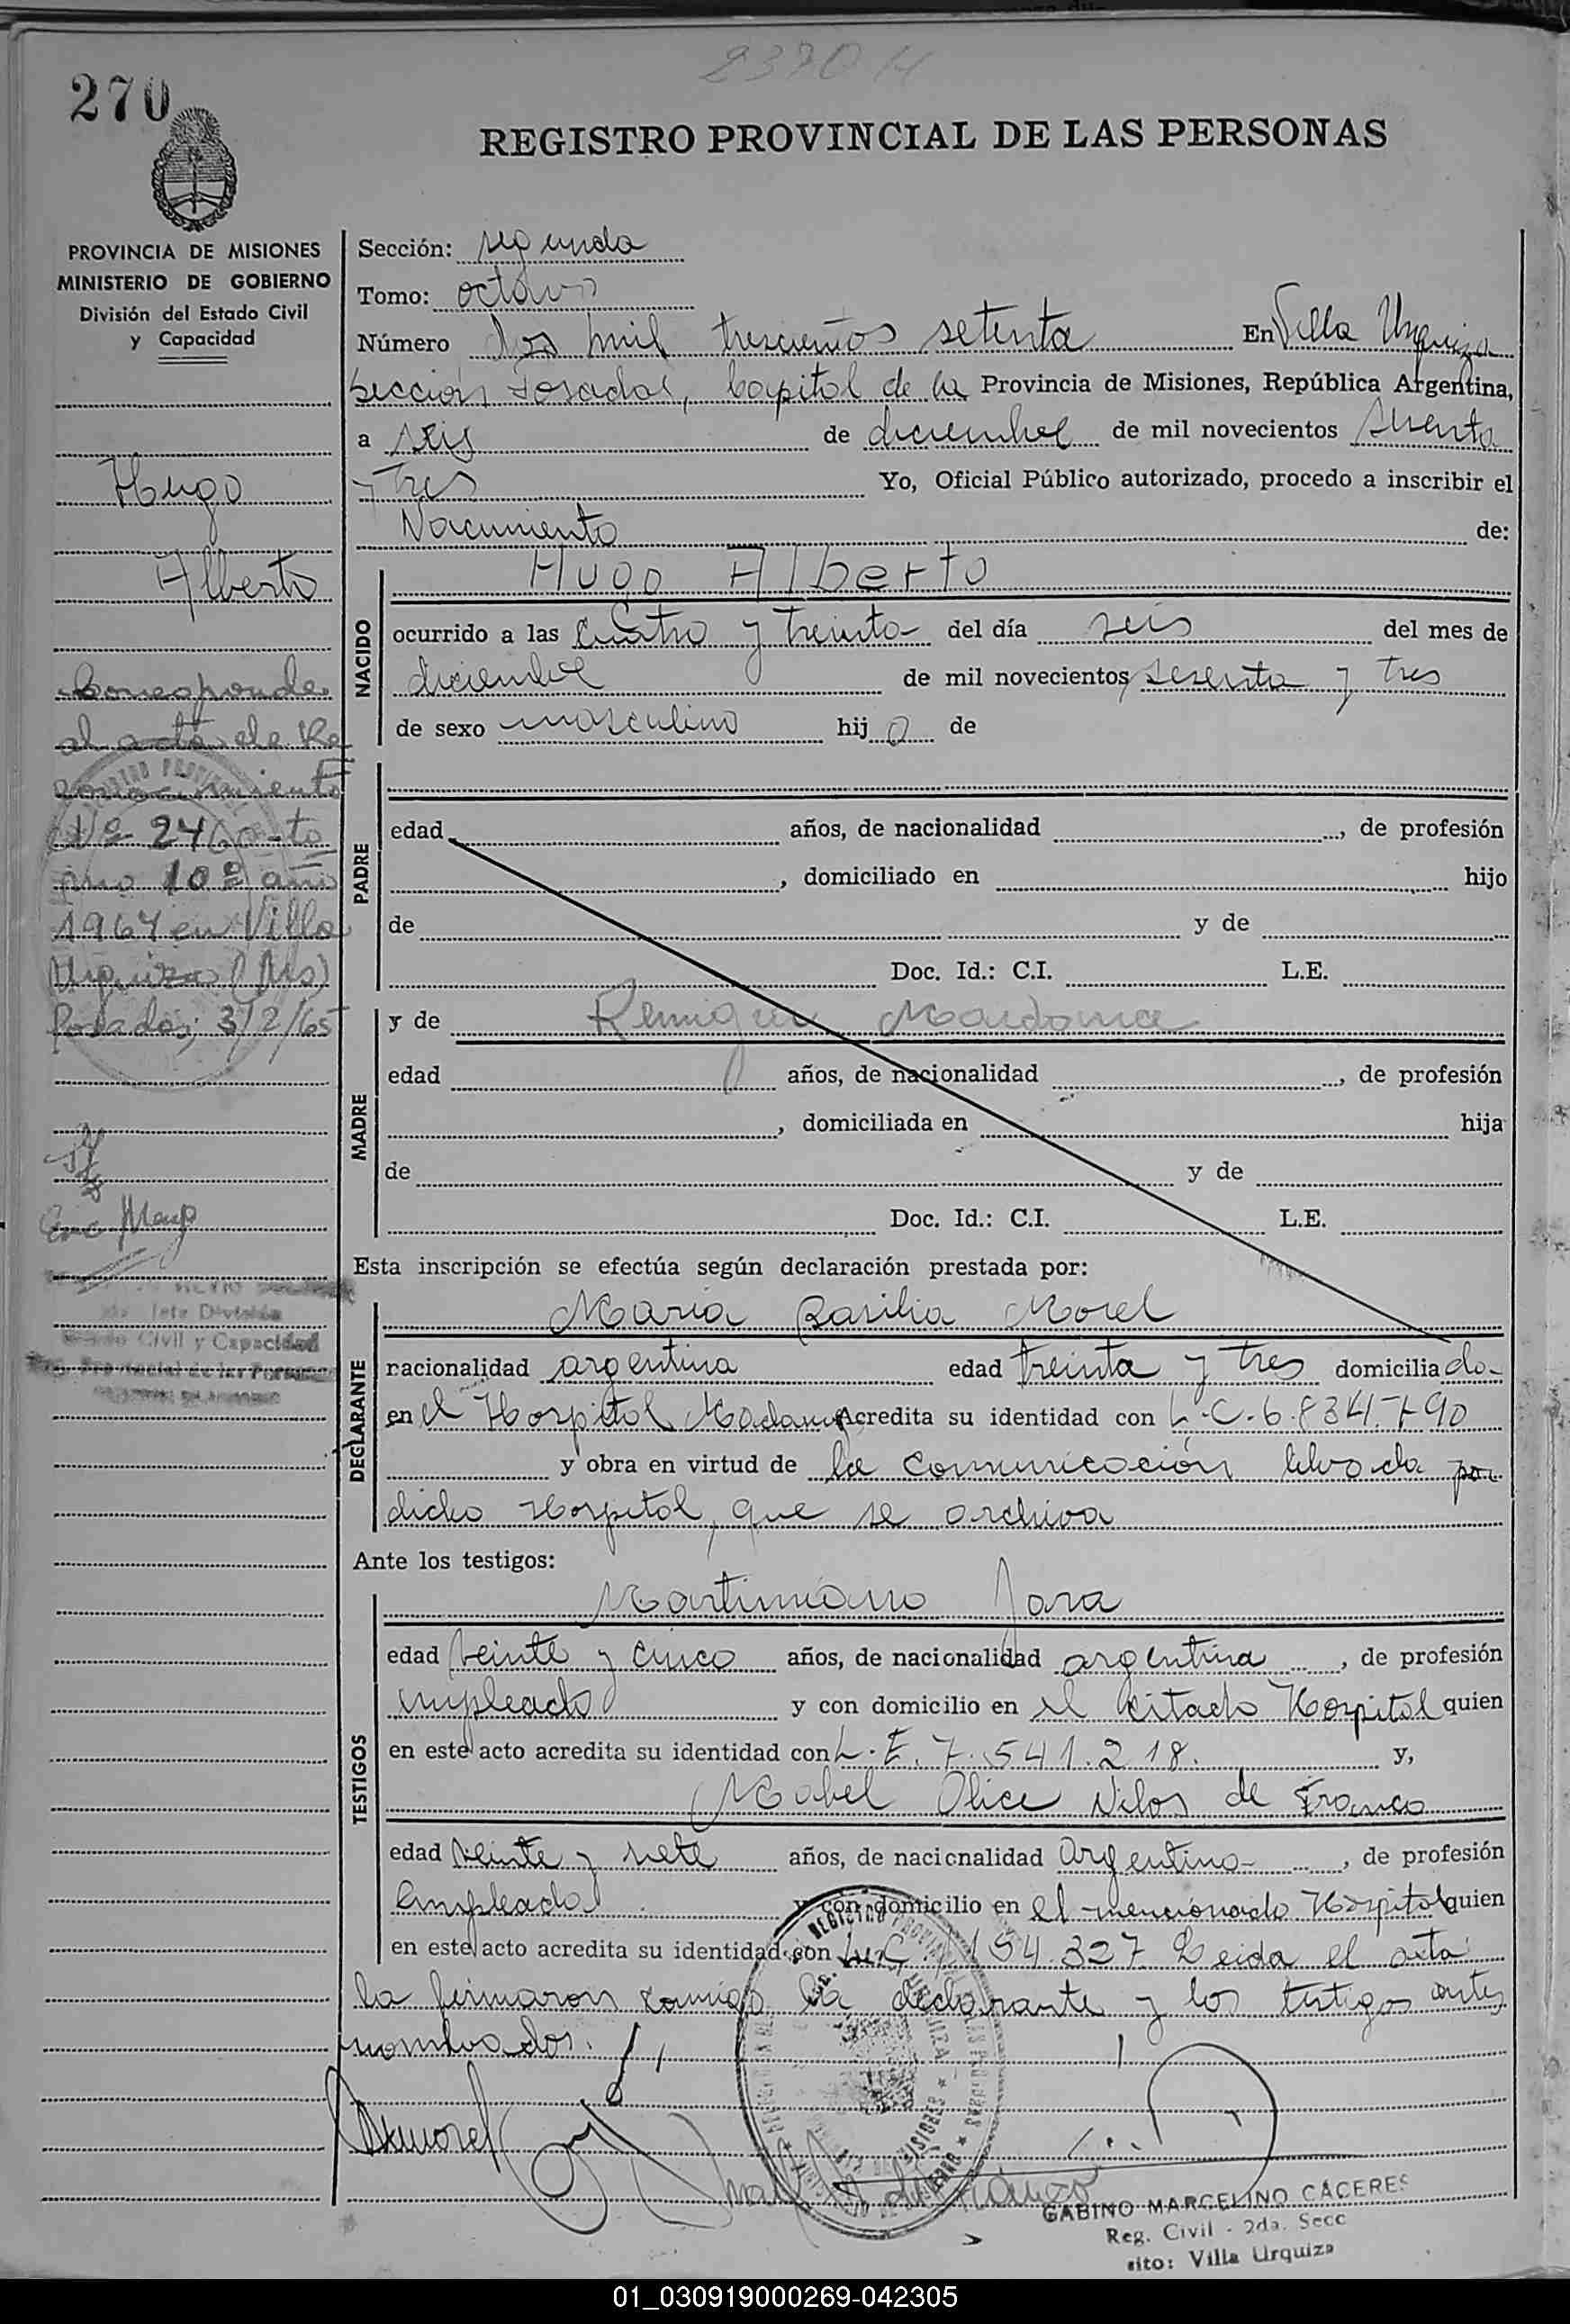 2370 H
270
REGISTRO PROVINCIAL DE LAS PERSONAS
PROVINCIA DE MISIONES
MINISTERIO DE GOBIERNO
División del Estado Civil
y Capacidad
Hugo
Alberto
Corresponde
al acta de Re
conocimiento
Nº 2460 - to
mo 10º año
1964 en Villa
Urquiza (Mis)
Posadas, 3/2/65
Jefe División
Estado Civil y Capacidad
Reg. Provincial de las Personas
Sección: segunda
Tomo: octavo
Número dos mil trescientos setenta En Villa Urquiza
Sección Posadas, Capital de la Provincia de Misiones, República Argentina,
a seis de diciembre de mil novecientos sesenta
y tres Yo, Oficial Público autorizado, procedo a inscribir el
Nacimiento de:
NACIDO
Hugo Alberto
ocurrido a las cuatro y treinta del día seis del mes de
diciembre de mil novecientos sesenta y tres
de sexo masculino hij o de
PADRE
edad años, de nacionalidad , de profesión
, domiciliado en hijo
de y de
Doc. Id.: C.I. L.E.
MADRE
y de
edad años, de nacionalidad , de profesión
, domiciliada en hija
de y de
Doc. Id.: C.I. L.E.
Esta inscripción se efectúa según declaración prestada por:
DECLARANTE
Maria Basilia Morel
nacionalidad argentina edad treinta y tres domicilia da
en el Hospital Madariaga Acredita su identidad con L.C. 6.834.790
y obra en virtud de la comunicación librada por
dicho Hospital, que se archiva
Ante los testigos:
TESTIGOS
Martimiano Jara
edad veinte y cinco años, de nacionalidad argentina , de profesión
empleado y con domicilio en el citado Hospital quien
en este acto acredita su identidad con L.E. 7.541.218. y,
Mabel Alice de Franco
edad veinte y siete años, de nacionalidad argentina , de profesión
empleada y con domicilio en el mencionado Hospital quien
en este acto acredita su identidad con 154.327 Leida el acta
la firmaron conmigo la declarante y los testigos antes
nombrados.
GABINO MARCELINO CÁCERES
Reg. Civil - 2da. Secc
sito: Villa Urquiza
01_030919000269-042305